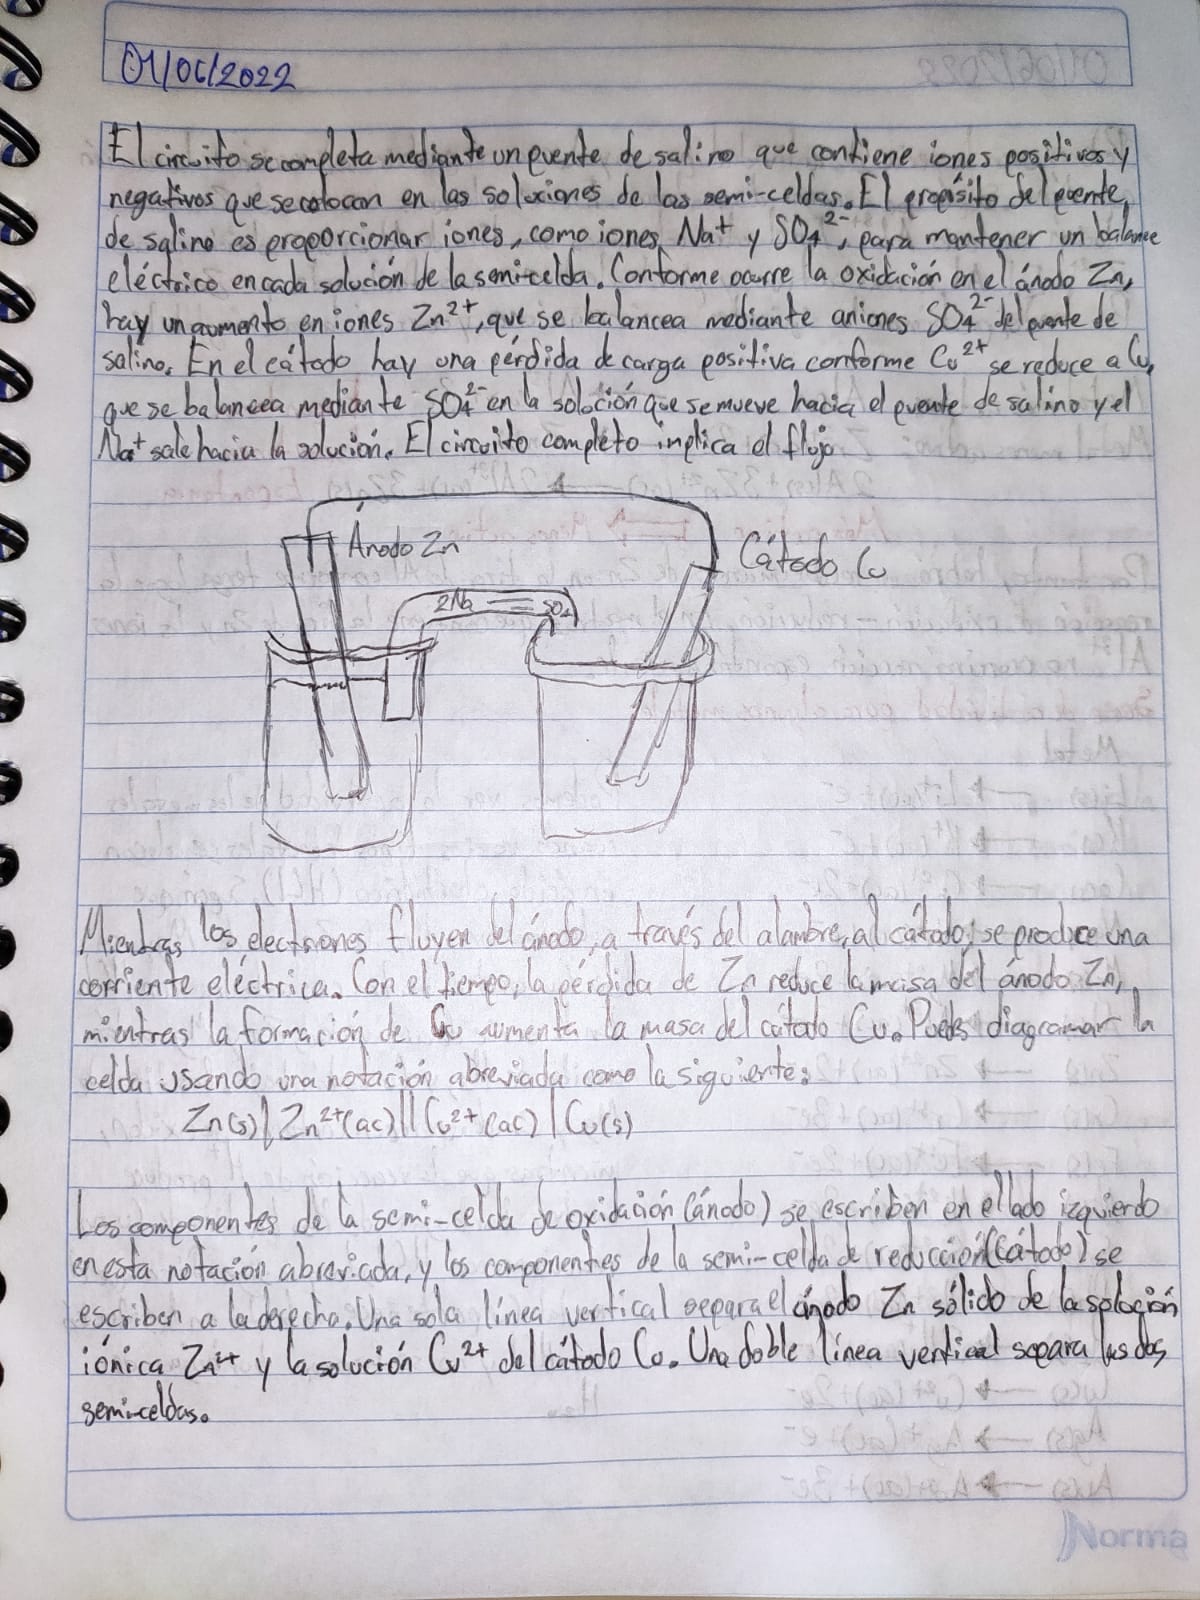 01/06/2022
El circuito se completa mediante un puente de salino que contiene iones positivos y
negativos que se colocan en las soluciones de las semi-celdas. El propósito del puente
de salino es proporcionar iones, como iones Na+ y SO4²⁻, para mantener un balance
eléctrico en cada solución de la semi-celda. Conforme ocurre la oxidación en el ánodo Zn,
hay un aumento en iones Zn²⁺, que se balancea mediante aniones SO4²⁻ del puente de
salino. En el cátodo hay una pérdida de carga positiva conforme Cu²⁺ se reduce a Cu,
que se balancea mediante SO4²⁻ en la solución que se mueve hacia el puente de salino y el
Na+ sale hacia la solución. El circuito completo implica el flujo
Ánodo Zn
Cátodo Cu
2Na SO4
Mientras los electrones fluyen del ánodo, a través del alambre, al cátodo; se produce una
corriente eléctrica. Con el tiempo, la pérdida de Zn reduce la masa del ánodo Zn,
mientras la formación de Cu aumenta la masa del cátodo Cu. Puedes diagramar la
celda usando una notación abreviada como la siguiente:
Zn(s) | Zn²⁺(ac) || Cu²⁺(ac) | Cu(s)
Los componentes de la semi-celda de oxidación (ánodo) se escriben en el lado izquierdo
en esta notación abreviada, y los componentes de la semi-celda de reducción (cátodo) se
escriben a la derecha. Una sola línea vertical separa el ánodo Zn sólido de la solución
iónica Zn²⁺ y la solución Cu²⁺ del cátodo Cu. Una doble línea vertical separa las dos
semi-celdas.
Norma